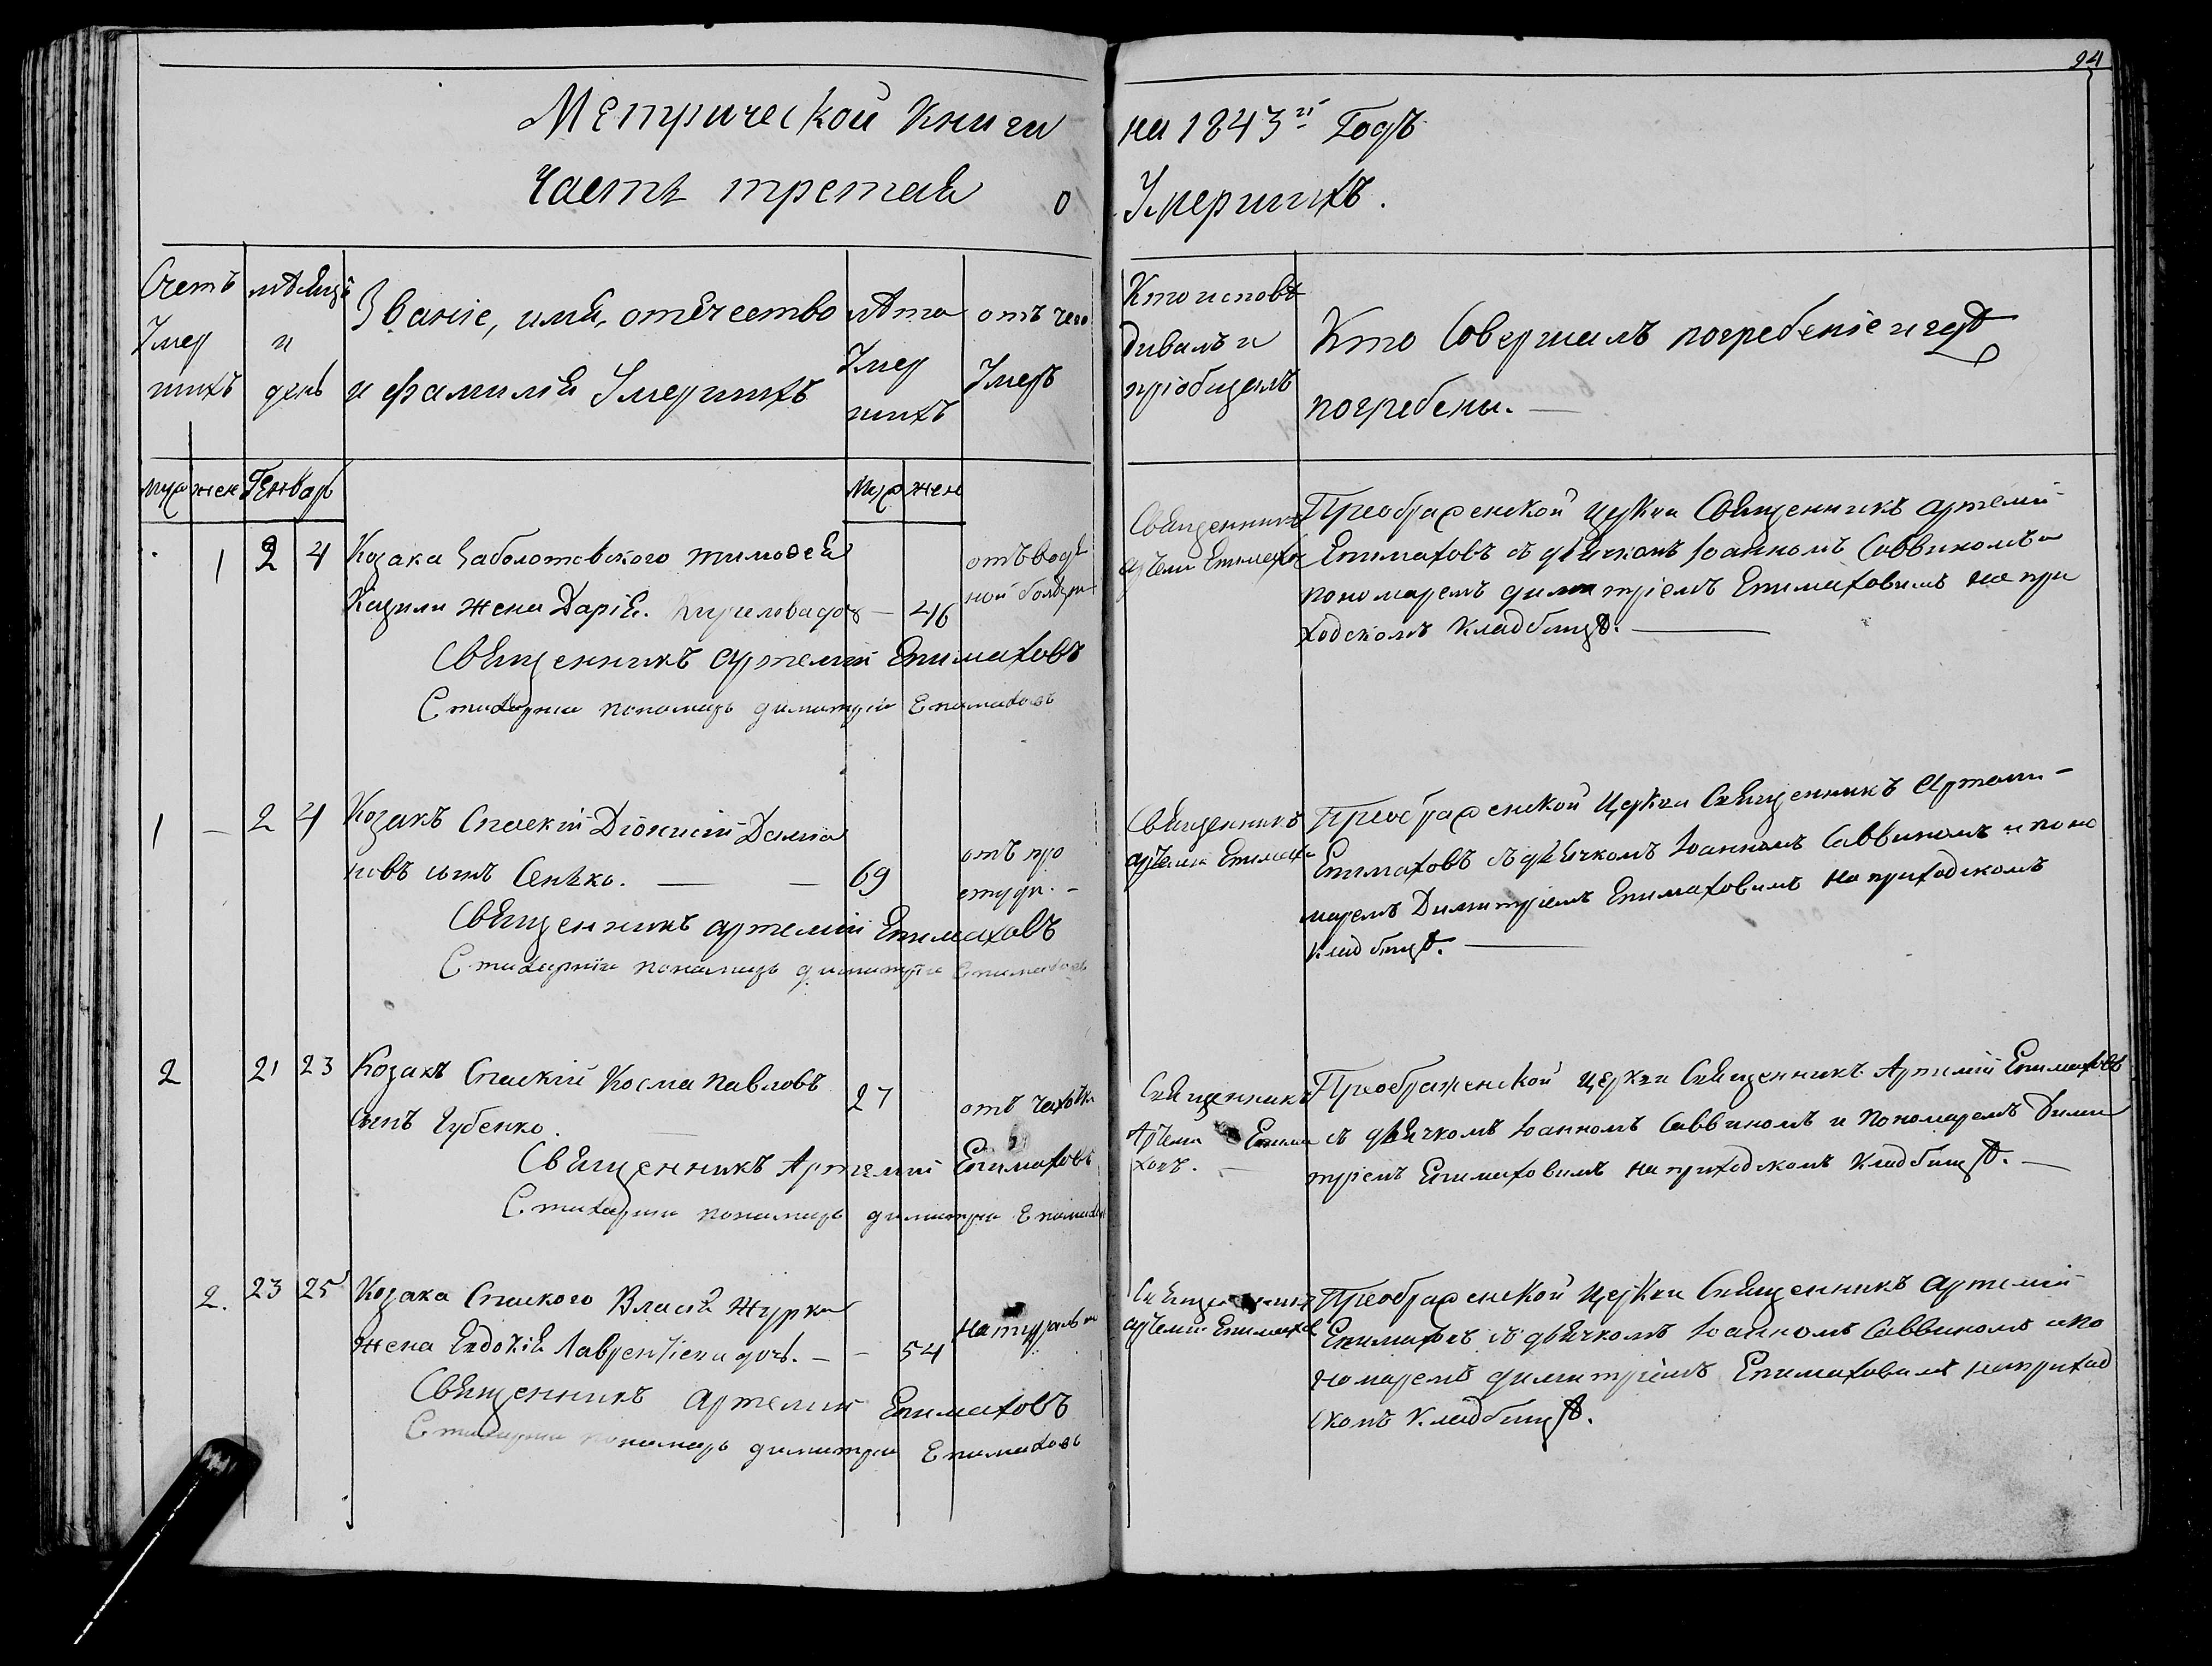 24
Метрической Книги на 1843й Годъ
Часть третая о Умершихъ.
Счетъ Умер шихъ
мѣсяцъ и день
Званіе, имя, отечество и фамилія Умершихъ
лѣта Умер шихъ
отъ чего Умеръ
Кто исповѣ дивалъ и пріобщалъ
Кто Совершалъ погребеніе и гдѣ погребены.
муж жен Генвар
муж жен
1 2 4 Козака Заболотовского тимоѳея
жена Дарія. Кирилова доч — 46
отъ водя
ной болѣзн
Священникъ артемій Епимаховъ
Стихарни пономарь димитрій Епимаховъ
Священникъ
артеми Епимахов
Преображенской церкви Священникъ артемій
Епимаховъ съ дьячкомъ Іоанномъ Саввиномъ и
пономаремъ димитріемъ Епимаховимъ на при
ходскомъ кладбищѣ.
1 — 2 4 Козакъ Спаскій Діонисій Демиа
новъ сынъ Сенько. — — 69
отъ про
студи. —
Священникъ артемій Епимаховъ
Стихарнїи пономарь димитрїи Епимаховъ
Священникъ
артеми Епимахо
Преображенской Церкви Священникъ Артеми
Епимаховъ съ дьячкомъ Іоанномъ Саввиномъ и поно
маремъ Димитріемъ Епимаховимъ на приходскомъ
кладбищѣ.
2 21 23 Козакъ Спаскій Косма павловъ
сынъ Губенко. 27
отъ чахотки
Священникъ Артемий Епимаховъ
Стихарни пономарь димитри Епимахов
Священникъ
Артеми Епима
ховъ.
Преображенской церкви Священникъ Артимій Епимаховъ
съ дьячкомъ Іоанномъ Саввиномъ и Пономаремъ Дими
тріемъ Епимаховимъ на приходскомъ кладбищѣ. —
2. 23 25 Козака Спаского Власія Журки
жена Евдокія Лаврентіева дочь. — — 54
натуральн
Священникъ артемии Епимаховъ
Стихарни пономарь димитри Епимаховъ
Священникъ
артемии Епимахов
Преображенской Церкви Священникъ артемій
Епимаховъ съ дьячкомъ Іоанномъ Саввиномъ и по
номаремъ димитріемъ Епимаховимъ на приход
скомъ кладбищѣ.